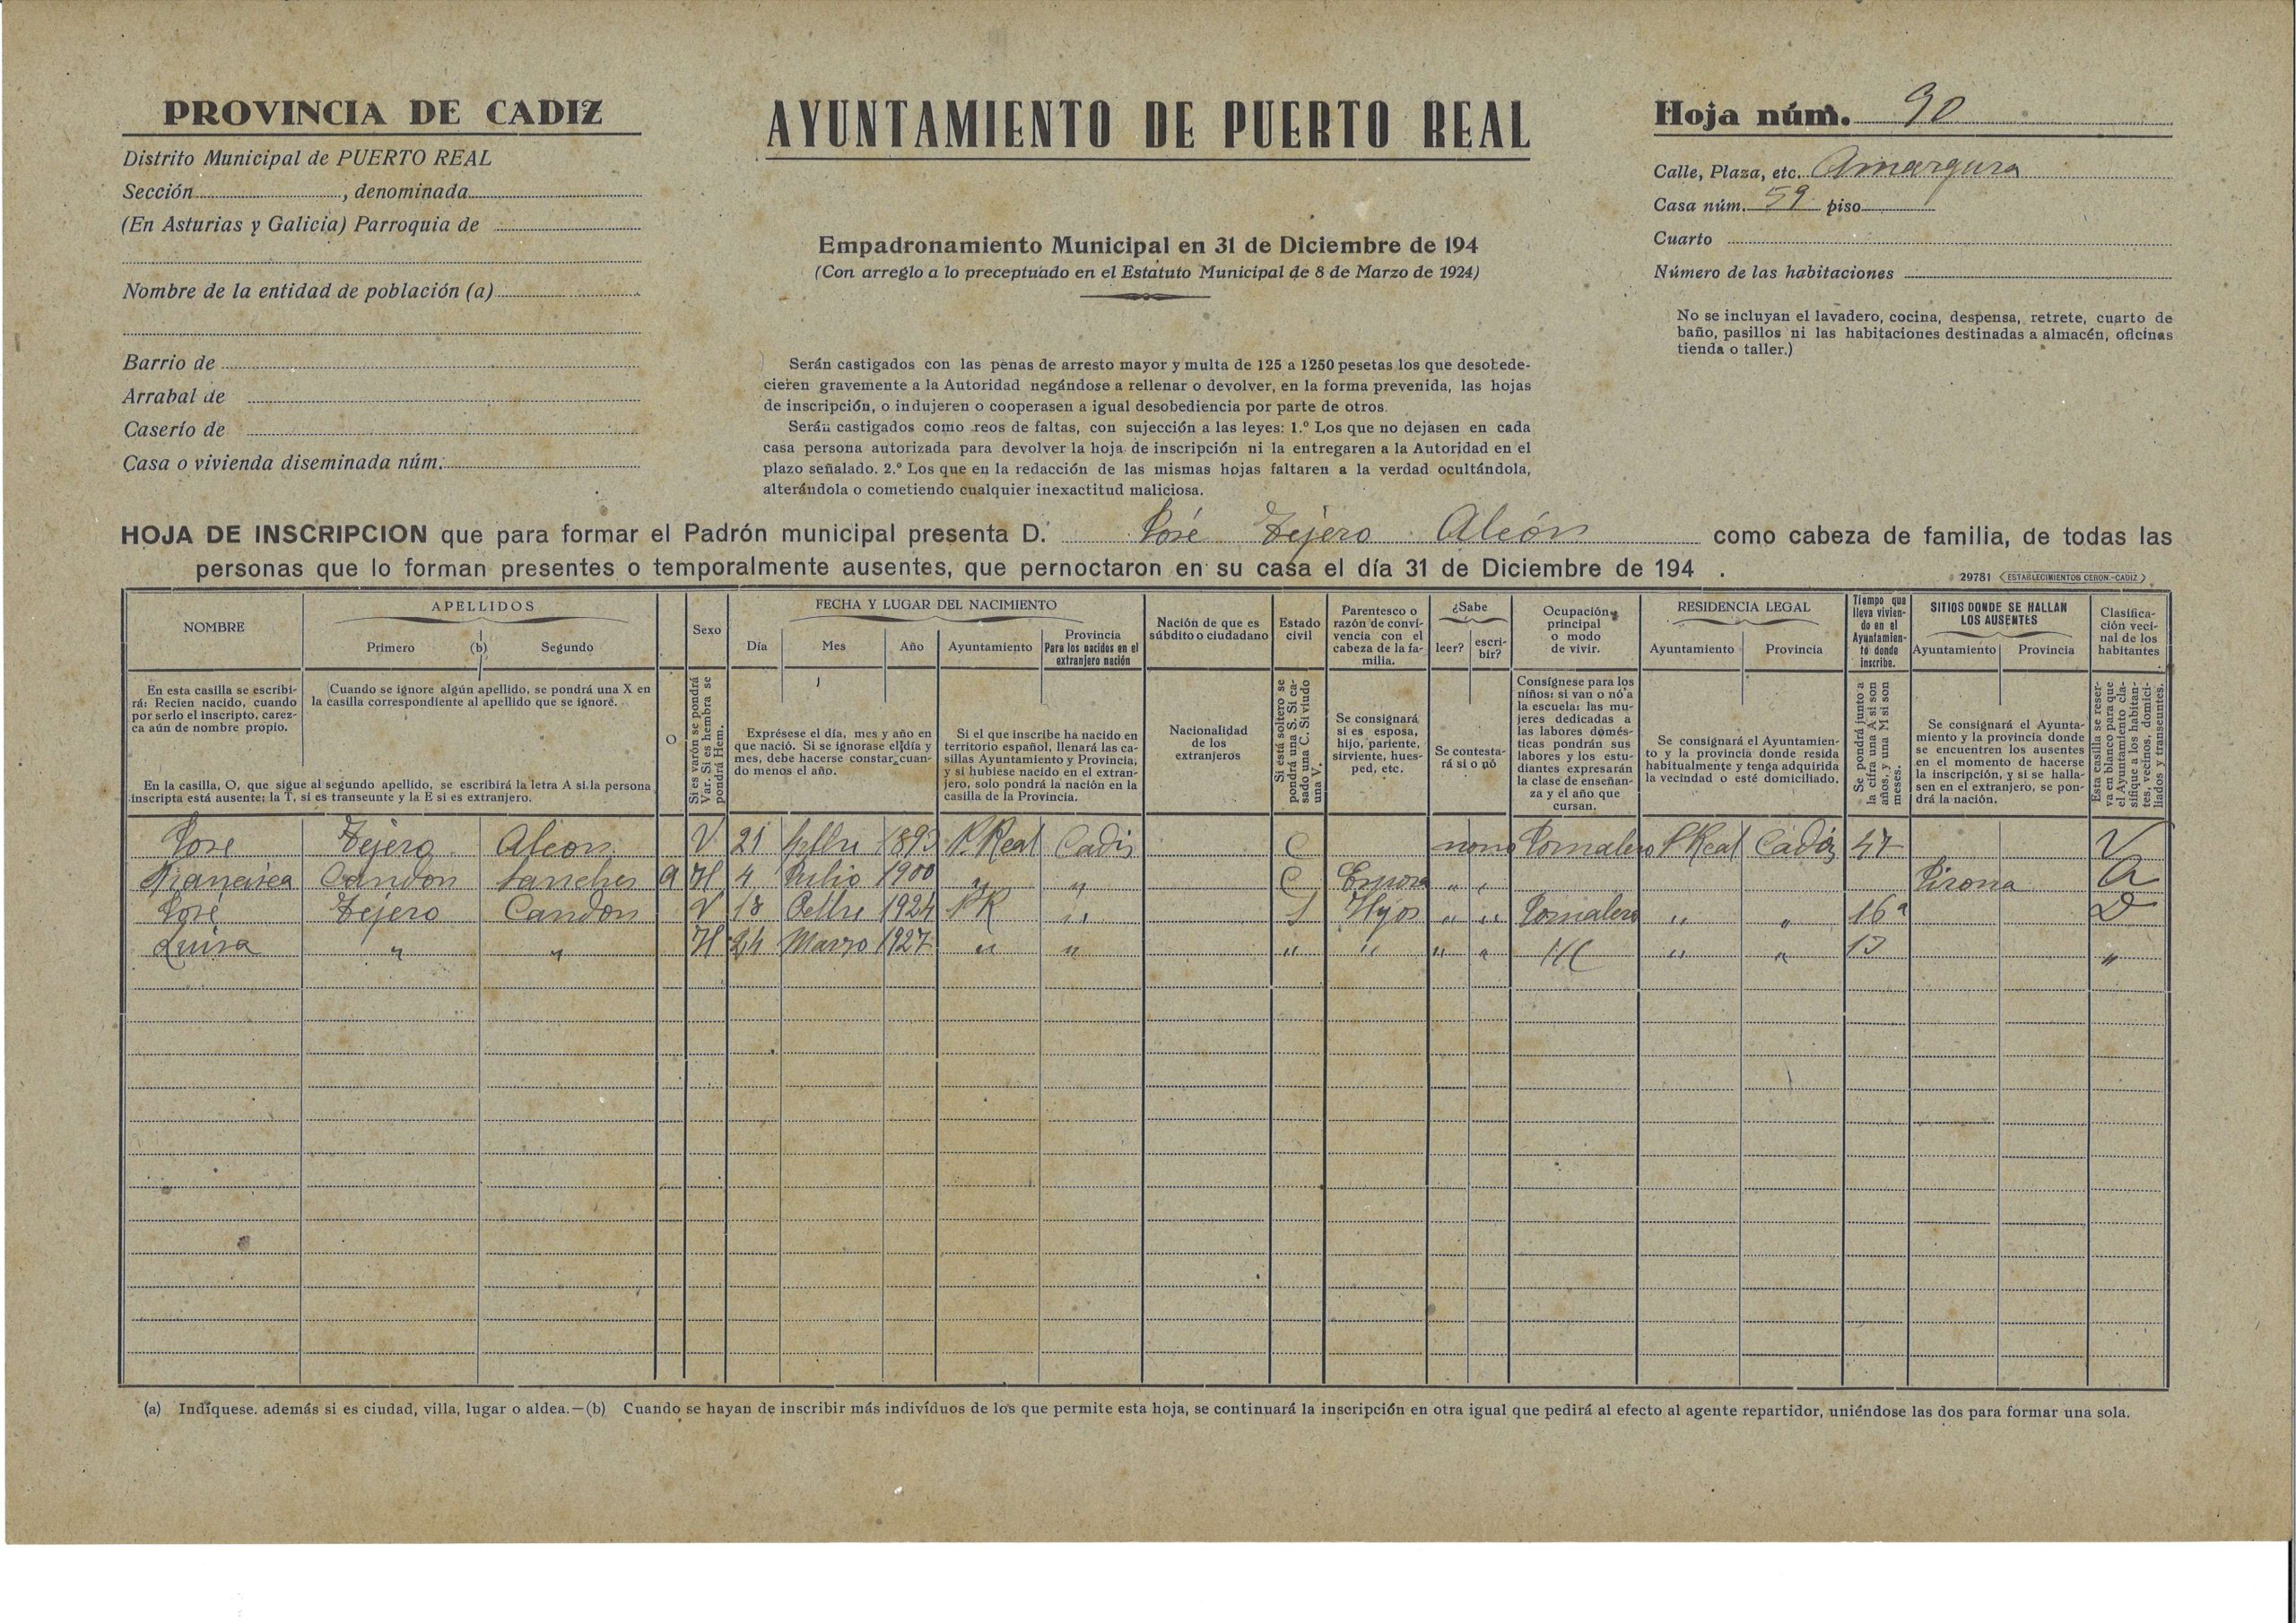 PROVINCIA DE CADIZ
Distrito Municipal de PUERTO REAL
Sección , denominada
(En Asturias y Galicia) Parroquia de
Nombre de la entidad de población (a)
Barrio de
Arrabal de
Caserío de
Casa o vivienda diseminada núm.
AYUNTAMIENTO DE PUERTO REAL
Empadronamiento Municipal en 31 de Diciembre de 194
(Con arreglo a lo preceptuado en el Estatuto Municipal de 8 de Marzo de 1924)
Serán castigados con las penas de arresto mayor y multa de 125 a 1250 pesetas los que desobede-
cieren gravemente a la Autoridad negándose a rellenar o devolver, en la forma prevenida, las hojas
de inscripción, o indujeren o cooperasen a igual desobediencia por parte de otros.
Serán castigados como reos de faltas, con sujección a las leyes: 1.º Los que no dejasen en cada
casa persona autorizada para devolver la hoja de inscripción ni la entregaren a la Autoridad en el
plazo señalado. 2.º Los que en la redacción de las mismas hojas faltaren a la verdad ocultándola,
alterándola o cometiendo cualquier inexactitud maliciosa.
Hoja núm. 90
Calle, Plaza, etc. Amargura
Casa núm. 59 piso
Cuarto
Número de las habitaciones
No se incluyan el lavadero, cocina, despensa, retrete, cuarto de
baño, pasillos ni las habitaciones destinadas a almacén, oficinas
tienda o taller.)
HOJA DE INSCRIPCION que para formar el Padrón municipal presenta D. José Tejero Aleón como cabeza de familia, de todas las
personas que lo forman presentes o temporalmente ausentes, que pernoctaron en su casa el día 31 de Diciembre de 194 .
29781 (ESTABLECIMIENTOS CERON.-CADIZ)
NOMBRE
APELLIDOS
Primero (b) Segundo
Sexo
FECHA Y LUGAR DEL NACIMIENTO
Día Mes Año Ayuntamiento
Provincia
Para los nacidos en el
extranjero nación
Nación de que es
súbdito o ciudadano
Estado
civil
Parentesco o
razón de convi-
vencia con el
cabeza de la fa-
milia.
¿Sabe
leer? escri-
bir?
Ocupación
principal
o modo
de vivir.
RESIDENCIA LEGAL
Ayuntamiento Provincia
Tiempo que
lleva vivien-
do en el
Ayuntamien-
to donde
inscribe.
SITIOS DONDE SE HALLAN
LOS AUSENTES
Ayuntamiento Provincia
Clasifica-
ción veci-
nal de los
habitantes
En esta casilla se escribi-
rá: Recien nacido, cuando
por serlo el inscripto, carez-
ca aún de nombre propio.
Cuando se ignore algún apellido, se pondrá una X en
la casilla correspondiente al apellido que se ignoré.
En la casilla, O, que sigue al segundo apellido, se escribirá la letra A si la persona
inscripta está ausente; la T, si es transeunte y la E si es extranjero.
O
Si es varón se pondrá
Var. Si es hembra se
pondrá Hem.
Exprésese el día, mes y año en
que nació. Si se ignorase el día y
mes, debe hacerse constar cuan-
do menos el año.
Si el que inscribe ha nacido en
territorio español, llenará las ca-
sillas Ayuntamiento y Provincia,
y si hubiese nacido en el extran-
jero, solo pondrá la nación en la
casilla de la Provincia.
Nacionalidad
de los
extranjeros
Si está soltero se
pondrá una S. Si ca-
sado una C. Si viudo
una V.
Se consignará
si es esposa,
hijo, pariente,
sirviente, hues-
ped, etc.
Se contesta-
rá si o nó
Consígnese para los
niños: si van o nó a
la escuela: las mu-
jeres dedicadas a
las labores domés-
ticas pondrán sus
labores y los estu-
diantes expresarán
la clase de enseñan-
za y el año que
cursan.
Se consignará el Ayuntamien-
to y la provincia donde resida
habitualmente y tenga adquirida
la vecindad o esté domiciliado.
Se pondrá junto a
la cifra una A si son
años, y una M si son
meses.
Se consignará el Ayunta-
miento y la provincia donde
se encuentren los ausentes
en el momento de hacerse
la inscripción, y si se halla-
sen en el extranjero, se pon-
drá la nación.
Esta casilla se reser-
va en blanco para que
el Ayuntamiento cla-
sifique a los habitan-
tes, vecinos, domici-
liados y transeuntes.
José Tejero Aleon V 21 1893 P. Real Cadiz C no no Jornalero P. Real Cádiz 47 V
Francisca Candon Sanches a H 4 Julio 1900 " " C Esposa " " Pirona A
José Tejero Candon V 18 1924 P R " S Hijos " " Jornalero " " 16 a D
Luisa " " H 24 Marzo 1927 " " " " " " " " 13 "
(a) Indíquese. además si es ciudad, villa, lugar o aldea.—(b) Cuando se hayan de inscribir más indivíduos de los que permite esta hoja, se continuará la inscripción en otra igual que pedirá al efecto al agente repartidor, uniéndose las dos para formar una sola.